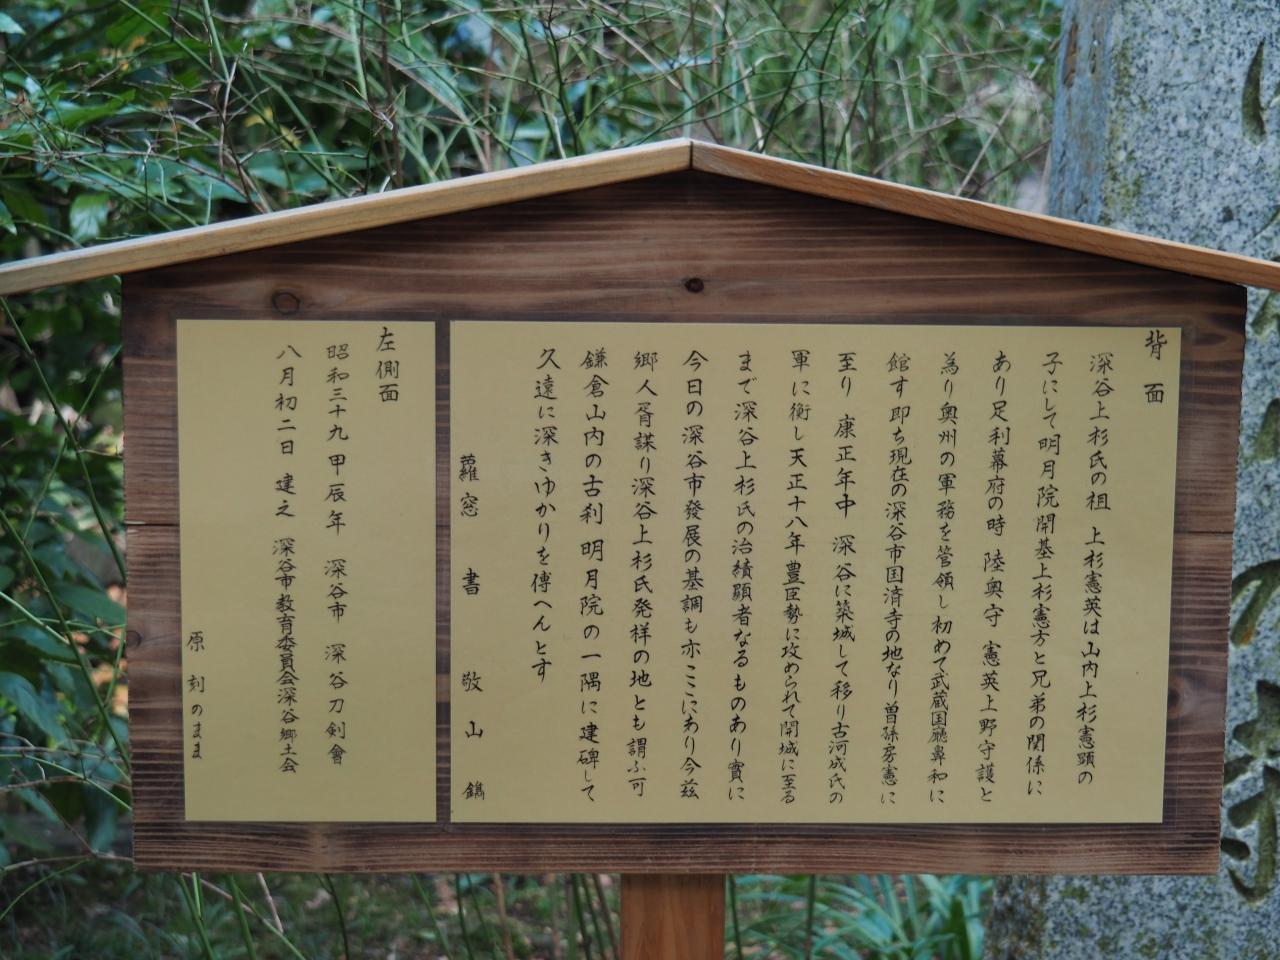 背面
深谷上杉氏の祖 上杉憲英は山内上杉憲顕の
子にして明月院開基上杉憲方と兄弟の関係に
あり足利幕府の時 陸奥守 憲英上野守護と
為り奥州の軍務を管領し初めて武蔵国廳鼻和に
館す即ち現在の深谷市国済寺の地なり曽孫房憲に
至り 康正年中 深谷に築城して移り古河成氏の
軍に衝し天正十八年豊臣勢に攻められて開城に至る
まで深谷上杉氏の治績顕者なるものあり實に
今日の深谷市發展の基調も亦ここにあり今茲
郷人胥謀り深谷上杉氏発祥の地とも謂ふ可
鎌倉山内の古刹明月院の一隅に建碑して
久遠に深きゆかりを傳へんとす
蘿窓 書 敬山 鐫
左側面
昭和三十九甲辰年 深谷市 深谷刀剣會
八月初二日 建之 深谷市教育委員会深谷郷土会
原刻のまま